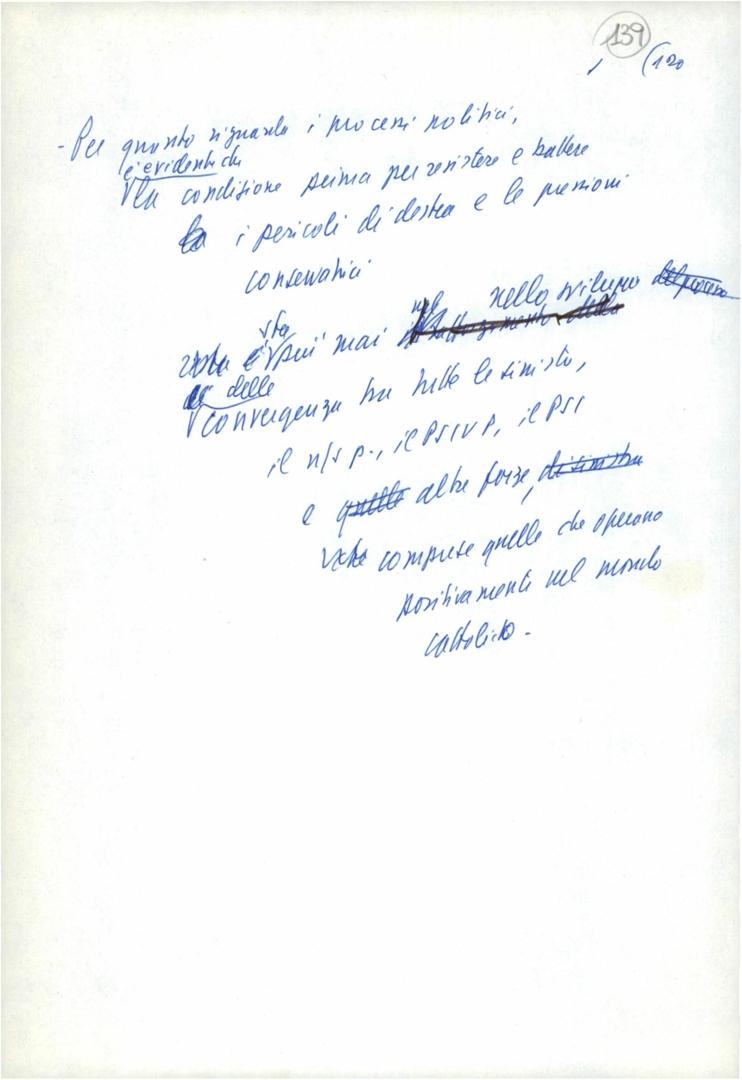 139
(120
- Per quanto riguarda i processi politici,
è evidente che
la condizione prima per resistere e battere
la i pericoli di destra e le pressioni
conservatrici
sta
resta è più mai nello sviluppo del processo
delle
convergenza tra tutte le sinistre,
il n/s p., il PSIUP, il PSI
e quelle altre forze, di sinistra
comprese quelle che operano
positivamente nel mondo
cattolico.